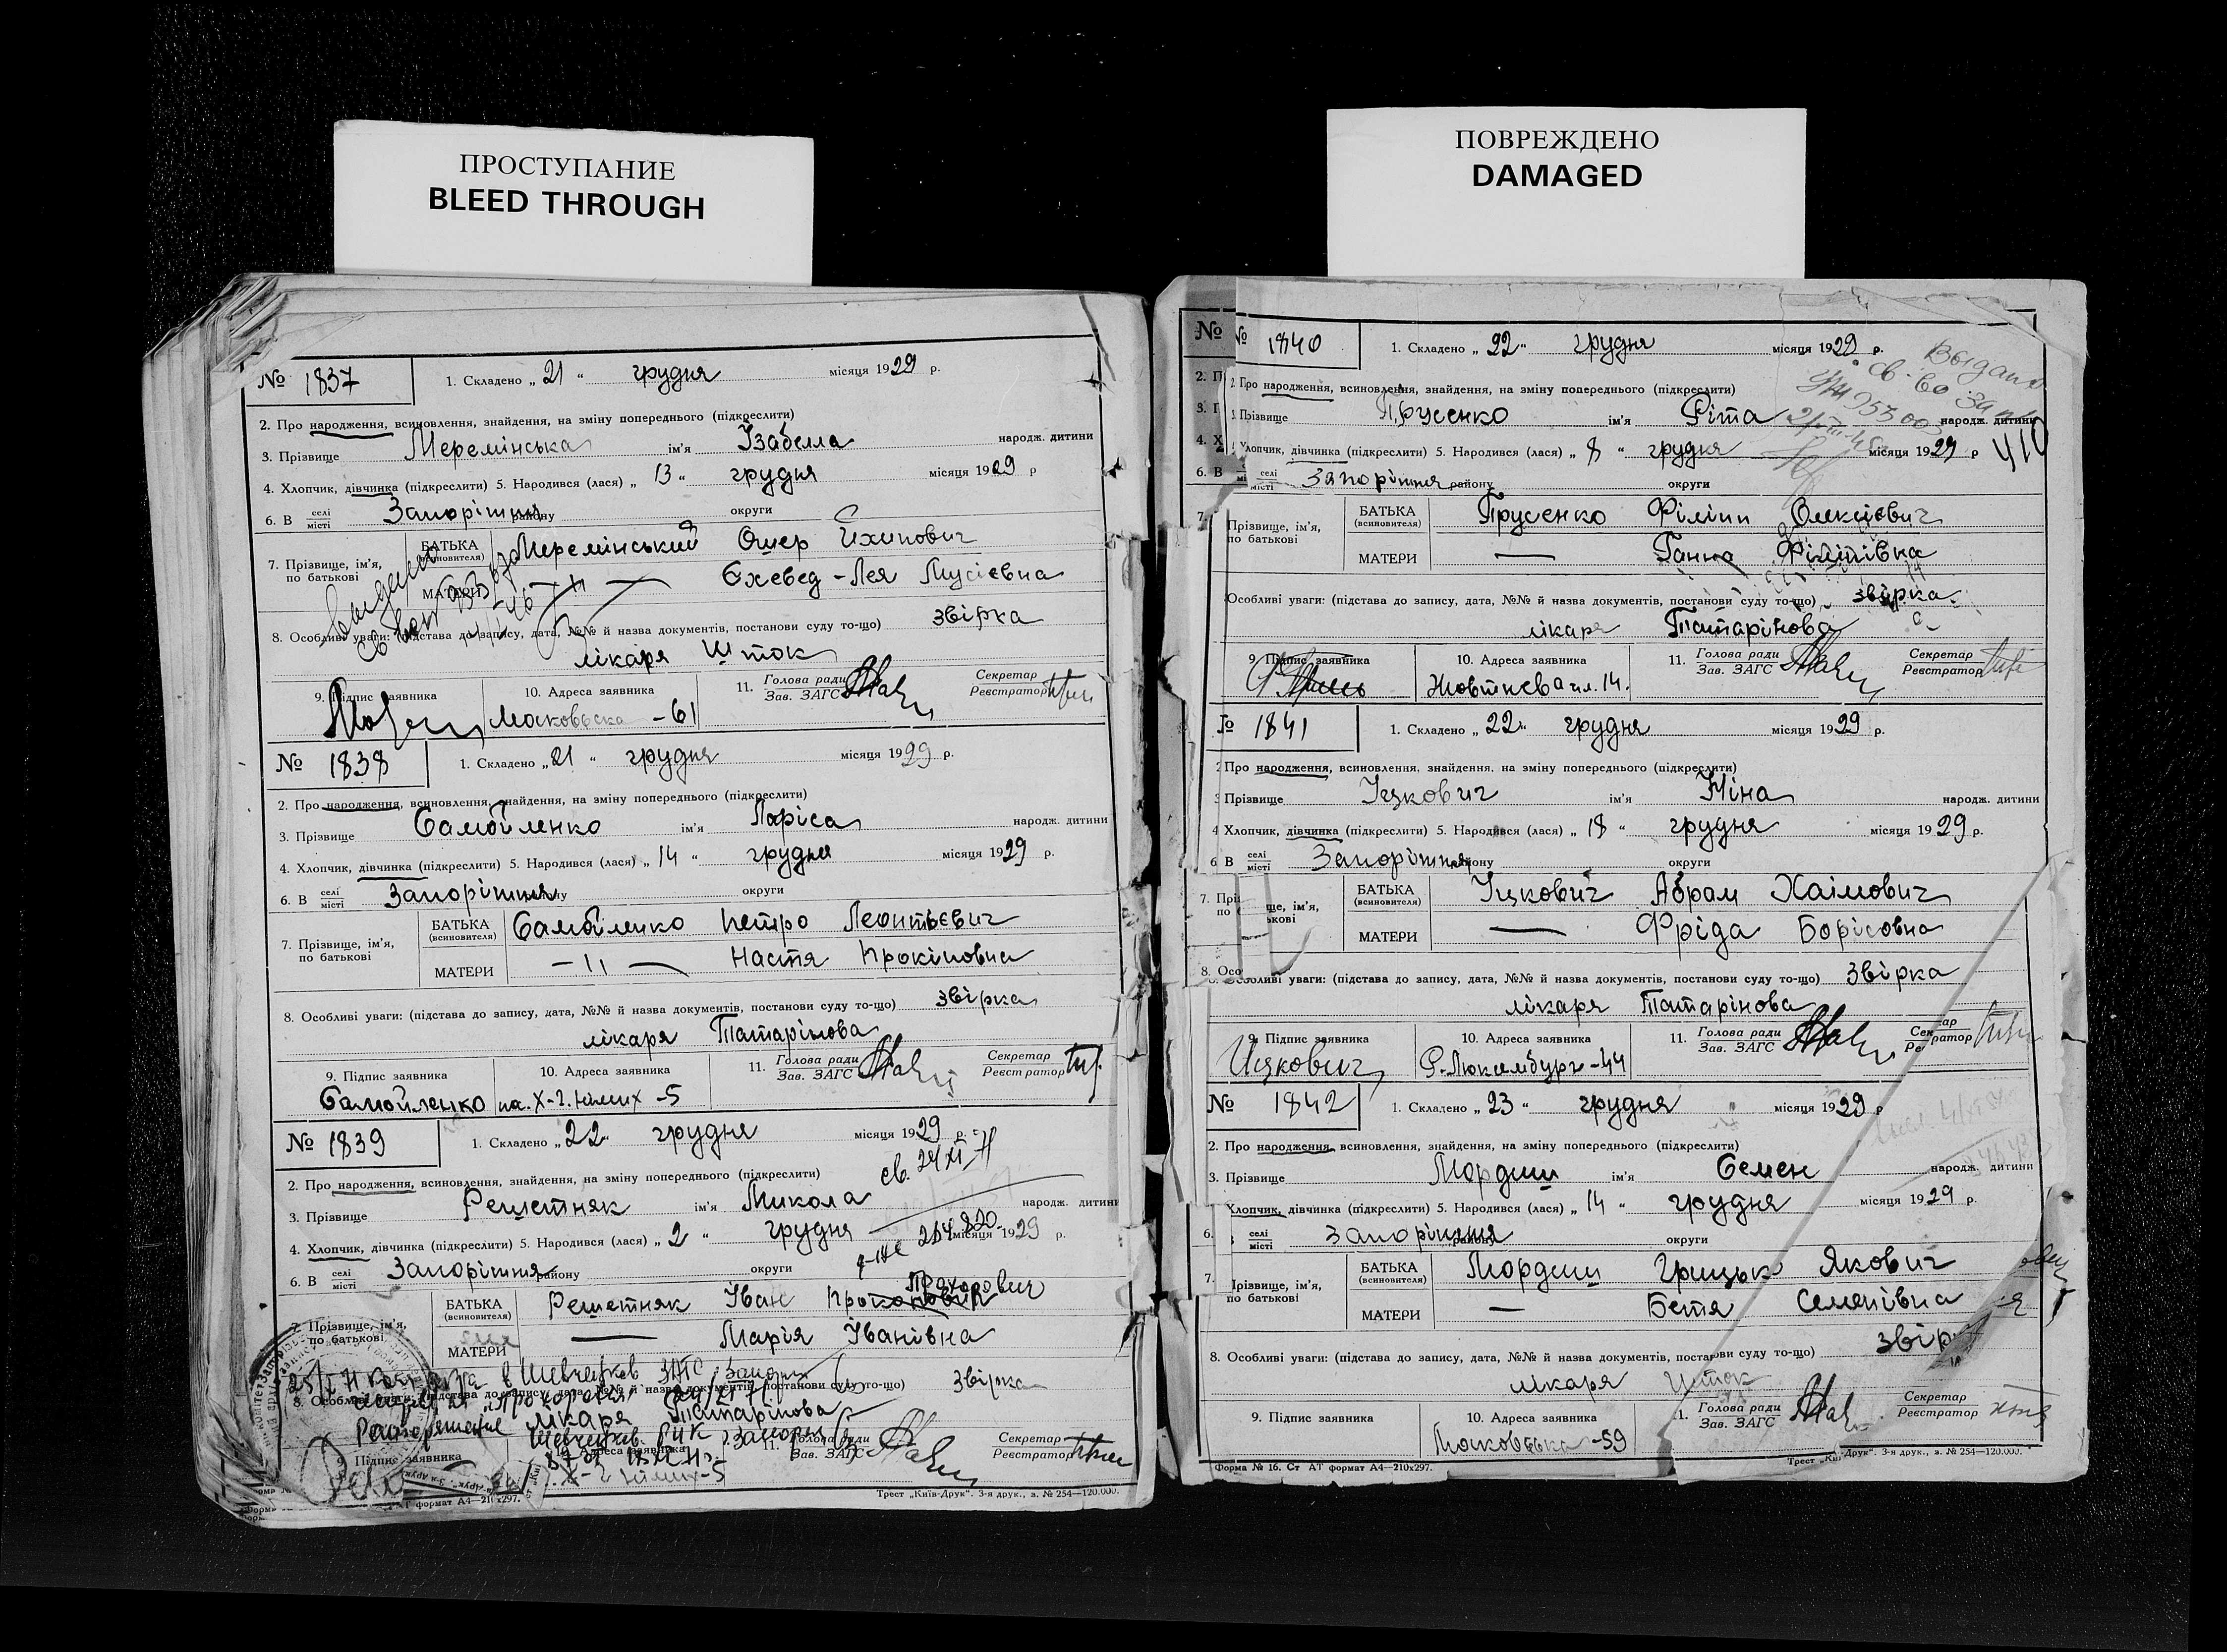 ПРОСТУПАНИЕ
BLEED THROUGH
№ 1837 1. Складено „ 21 “ грудня місяця 1929 р.
2. Про народження, всиновлення, знайдення, на зміну попереднього (підкреслити)
3. Прізвище Меремінська ім'я Ізабелла народж. дитини
4. Хлопчик, дівчинка (підкреслити) 5. Народився (лася) „ 13 “ грудня місяця 1929 р
6. В селі місті Запоріжжя району округи
7. Прізвище, ім'я, по батькові
БАТЬКА (всиновителя) Меремінський Ошер Ихилович
МАТЕРИ — " — Єхевед-Лея Мусієвна
8. Особливі уваги: (підстава до запису, дата, №№ й назва документів, постанови суду то-що) звірка
лікаря Шток
9. Підпис заявника 10. Адреса заявника 11. Голова ради Зав. ЗАГС Секретар Реєстратор
Московська -61
№ 1838 1. Складено „ 21 “ грудня місяця 1929 р.
2. Про народження, всиновлення, знайдення, на зміну попереднього (підкреслити)
3. Прізвище Самойленко ім'я Ларіса народж. дитини
4. Хлопчик, дівчинка (підкреслити) 5. Народився (лася) „ 14 “ грудня місяця 1929 р.
6. В селі місті Запоріжжя округи
7. Прізвище, ім'я, по батькові
БАТЬКА (всиновителя) Самойленко Петро Леонтьєвич
МАТЕРИ — " — Настя Прокіповна
8. Особливі уваги: (підстава до запису, дата, №№ й назва документів, постанови суду то-що) звірка
лікаря Татарінова
9. Підпис заявника 10. Адреса заявника 11. Голова ради Зав. ЗАГС Секретар Реєстратор
Самойленко -5
№ 1839 1. Складено „ 22 “ грудня місяця 1929 р.
св. 24/XI 71
2. Про народження, всиновлення, знайдення, на зміну попереднього (підкреслити)
3. Прізвище Решетняк ім'я Микола народж. дитини
4. Хлопчик, дівчинка (підкреслити) 5. Народився (лася) „ 2 “ грудня місяця 1929 р.
6. В селі місті Запоріжжя району округи
7. Прізвище, ім'я, по батькові
БАТЬКА (всиновителя) Решетняк Іван Прохорович
МАТЕРИ — Марія Іванівна
8. Особливі уваги: (підстава до запису, дата, №№ й назва документів, постанови суду то-що) звірка
лікаря Татарінова
9. Підпис заявника 10. Адреса заявника 11. Голова ради Зав. ЗАГС Секретар Реєстратор
формат А4—210х297. Трест „Київ-Друк“. 3-я друк., з. № 254—120.000.
ПОВРЕЖДЕНО
DAMAGED
№ 1840 1. Складено „ 22 “ грудня місяця 1929 р.
Выдано
2. Про народження, всиновлення, знайдення, на зміну попереднього (підкреслити)
Прізвище Прусенко ім'я Ріта народж. дитини
Хлопчик, дівчинка (підкреслити) 5. Народився (лася) „ 8 “ грудня місяця 1929 р
6. В селі місті Запоріжжя району округи
7. Прізвище, ім'я, по батькові
БАТЬКА (всиновителя) Прусенко Філіпп Олексієвич
МАТЕРИ — Ганна Філіпівка
Особливі уваги: (підстава до запису, дата, №№ й назва документів, постанови суду то-що) звірка
лікаря Татарінова
9. Підпис заявника 10. Адреса заявника 11. Голова ради Зав. ЗАГС Секретар Реєстратор
Жовтнева пл. 14.
№ 1841 1. Складено „ 22 “ грудня місяця 1929 р.
2 Про народження, всиновлення, знайдення, на зміну попереднього (підкреслити)
3 Прізвище Іцкович ім'я Ніна народж. дитини
4 Хлопчик, дівчинка (підкреслити) 5. Народився (лася) „ 18 “ грудня місяця 1929 р.
6 В селі місті Запоріжжя району округи
7. Прізвище, ім'я, по батькові
БАТЬКА (всиновителя) Іцкович Абрам Хаімович
МАТЕРИ — Фріда Борісовна
8. Особливі уваги: (підстава до запису, дата, №№ й назва документів, постанови суду то-що) звірка
лікаря Татарінова
9. Підпис заявника 10. Адреса заявника 11. Голова ради Зав. ЗАГС Секретар Реєстратор
Ицкович Р.Люксембург-44
№ 1842 1. Складено „ 23 “ грудня місяця 1929 р
2. Про народження, всиновлення, знайдення, на зміну попереднього (підкреслити)
3. Прізвище Мордиш ім'я Семен народж. дитини
Хлопчик, дівчинка (підкреслити) 5. Народився (лася) „ 14 “ грудня місяця 1929 р.
6. селі місті Запоріжжя району округи
7. Прізвище, ім'я, по батькові
БАТЬКА (всиновителя) Мордиш Грицько Якович
МАТЕРИ — Бетя Семенівна
8. Особливі уваги: (підстава до запису, дата, №№ й назва документів, постанови суду то-що) звірка
лікаря Шток
9. Підпис заявника 10. Адреса заявника 11. Голова ради Зав. ЗАГС Секретар Реєстратор
Московська -59
Форма № 16. Ст АТ формат А4—210х297. Трест „Київ-Друк“. 3-я друк., з. № 254—120.000.